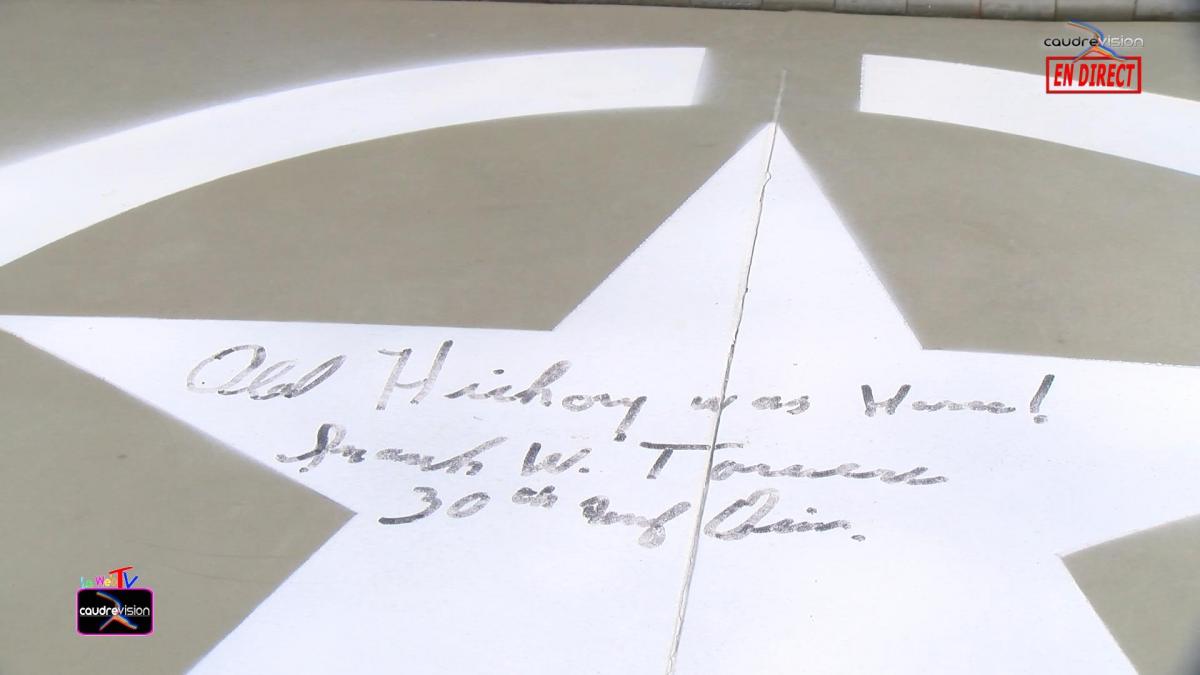 caudrevision
EN DIRECT
Old Hickory was Here!
Frank W. Towers
30th Inf Div.
La WebTV
caudrevision